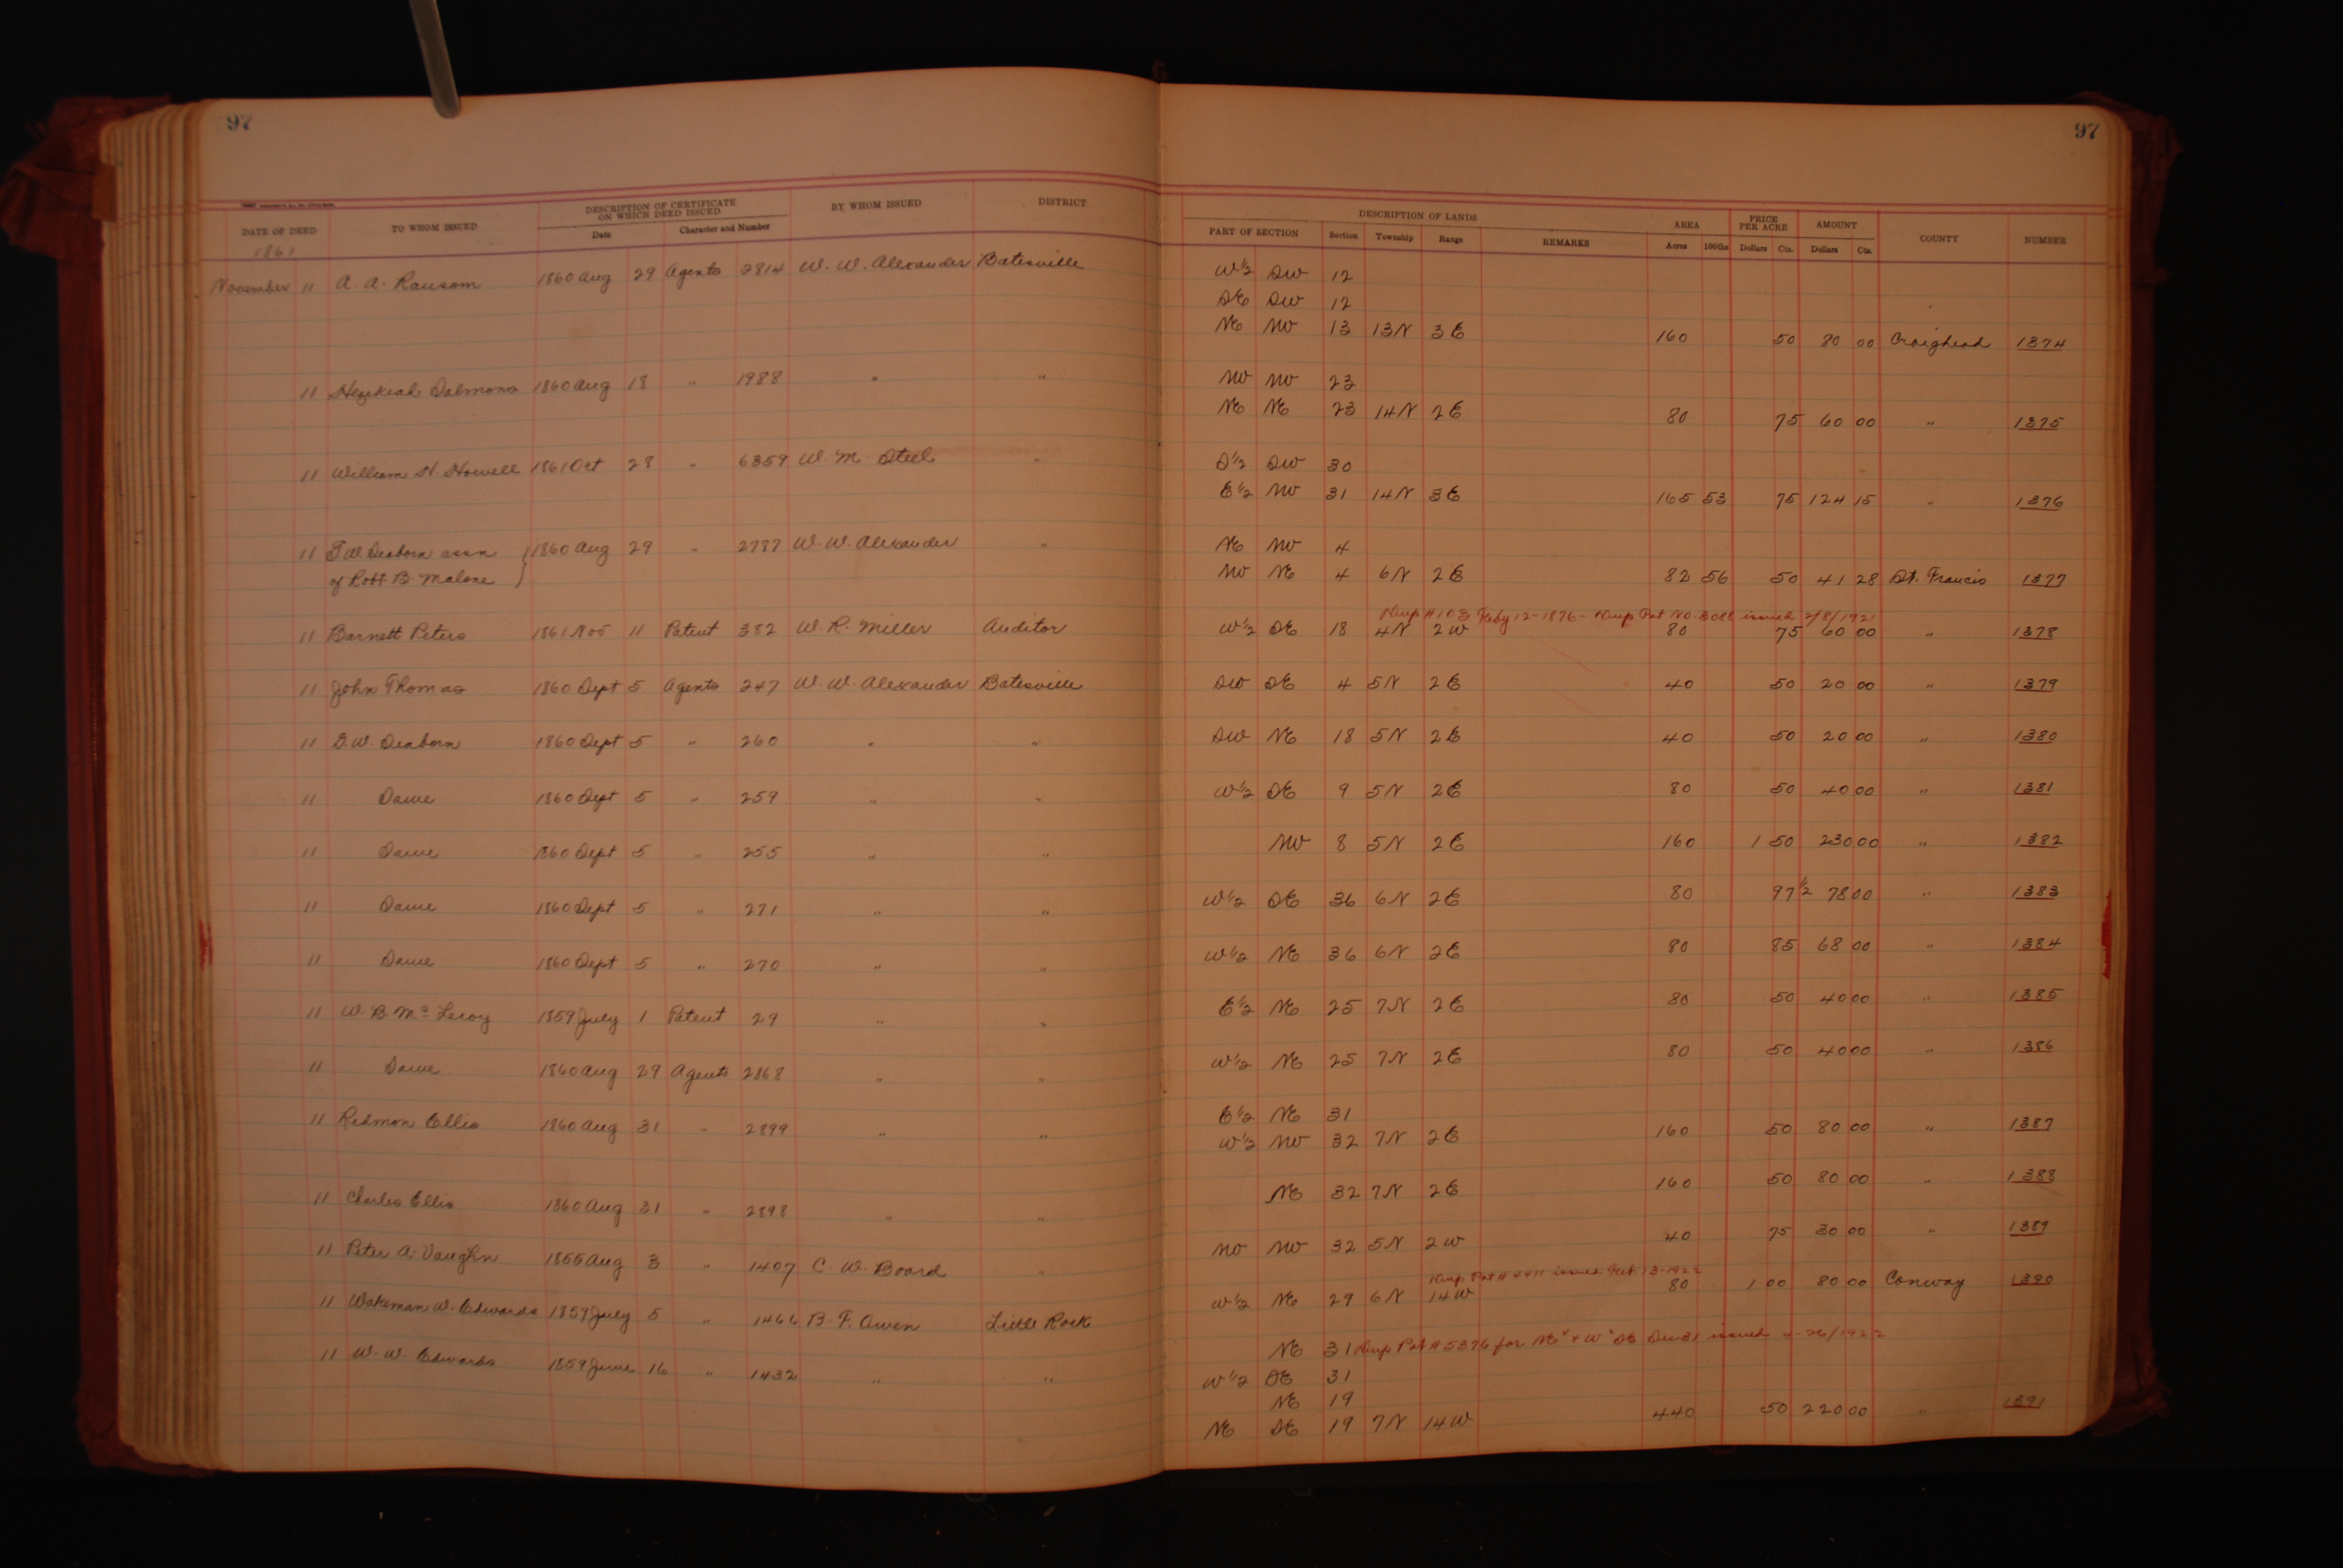 97
97
DATE OF DEED TO WHOM ISSUED DESCRIPTION OF CERTIFICATE ON WHICH DEED ISSUED BY WHOM ISSUED DISTRICT DESCRIPTION OF LANDS AREA PRICE PER ACRE AMOUNT COUNTY NUMBER
Date Character and Number PART OF SECTION Section Township Range REMARKS Acres 100ths Dollars Cts. Dollars Cts.
1861
November 11 A. A. Ransom 1860 Aug 29 Agents 2814 W. W. Alexander Batesville W½ SW 12
SE SW 12
NE NW 13 13N 3E 160 50 80 00 Craighead 1374
11 Hezekiah Salmons 1860 Aug 18 " 1988 " " NW NW 23
NE NE 23 14N 2E 80 75 60 00 " 1375
11 William H. Howell 1861 Oct 28 " 6359 W. M. Steel " S½ SW 30
E½ NW 31 14N 3E 165 53 75 124 15 " 1376
11 Seaborn assn 1860 Aug 29 " 2787 W. W. Alexander " NE NW 4
of Robt. B. Malone NW NE 4 6N 2E 82 56 50 41 28 St. Francis 1377
Dup #103 Feby 12-1876- Dup Pat No. 3088 issued 2/8/1921
11 Barnett Peters 1861 Nov 11 Patent 382 W. R. Miller Auditor W½ SE 18 4N 2W 80 75 60 00 " 1378
11 John Thomas 1860 Sept 5 Agents 247 W. W. Alexander Batesville SW SE 4 5N 2E 40 50 20 00 " 1379
11 W. Seaborn 1860 Sept 5 " 260 " " SW NE 18 5N 2E 40 50 20 00 " 1380
11 Same 1860 Sept 5 " 259 " " W½ SE 9 5N 2E 80 50 40 00 " 1381
11 Same 1860 Sept 5 " 255 " " NW 8 5N 2E 160 1 50 230 00 " 1382
11 Same 1860 Sept 5 " 271 " " W½ SE 36 6N 2E 80 97½ 78 00 " 1383
11 Same 1860 Sept 5 " 270 " " W½ NE 36 6N 2E 80 85 68 00 " 1384
11 W. B. McLeroy 1859 July 1 Patent 29 " " E½ NE 25 7N 2E 80 50 40 00 " 1385
11 Same 1860 Aug 29 Agents 2868 " " W½ NE 25 7N 2E 80 50 40 00 " 1386
11 Redmon Ellis 1860 Aug 31 " 2899 " " E½ NE 31
W½ NW 32 7N 2E 160 50 80 00 " 1387
11 Charles Ellis 1860 Aug 31 " 2898 " " NE 32 7N 2E 160 50 80 00 " 1388
11 Peter A. Vaughn 1855 Aug 3 " 1407 C. W. Board " NW NW 32 5N 2W 40 75 30 00 " 1389
Dup Pat issued 13-1922
11 Wakeman W. Edwards 1859 July 5 " 1466 B. F. Owen Little Rock W½ NE 29 6N 14W 80 1 00 80 00 Conway 1390
11 W. W. Edwards 1859 June 16 " 1432 " " NE 31 Dup Pat #5376 for NE & W½ SE Sec 31 issued 26/1922
W½ SE 31
NE 19
NE SE 19 7N 14W 440 50 220 00 " 1391